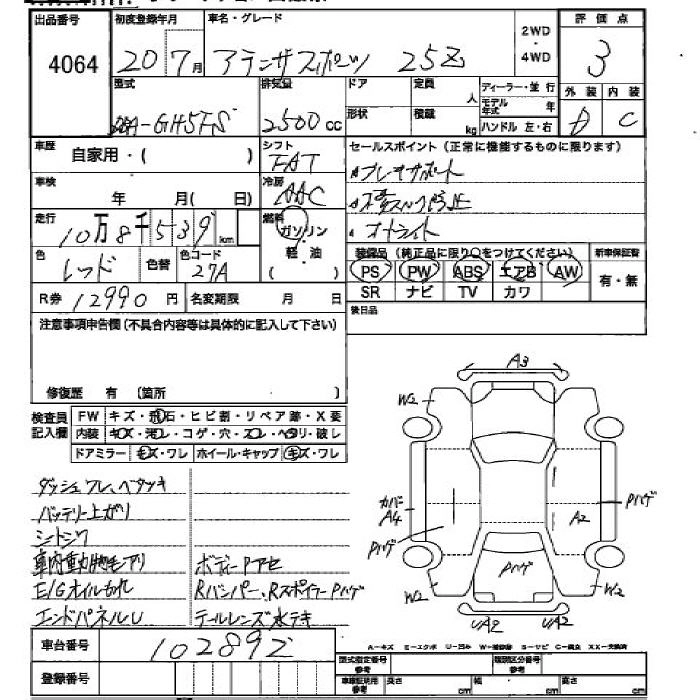 出品番号
4064
初度登録年月
20 7月
車名・グレード
アテンザスポーツ 25Z
2WD
・
4WD
評価点
3
型式
DBA-GH5FS
排気量
2500cc
ドア
形状
定員
人
積載
kg
ディーラー・並行
モデル年式
年
ハンドル 左・右
外装 内装
D C
車歴
自家用・( )
シフト
FAT
セールスポイント(正常に機能するものに限ります)
車検
年 月(日)
冷房
AAC
オートライト
走行
10万8千539km
燃料
ガソリン
軽・油
( )
色
レッド
色替
色コード
27A
装備品(純正品に限り○をつけてください)
新車保証書
PS PW ABS エアB AW
SR ナビ TV カワ
有・無
R券 12990円
名変期限 月 日
後日品
注意事項申告欄(不具合内容等は具体的に記入して下さい)
修復歴 有 〔箇所 〕
検査員記入欄
FW キズ・飛石・ヒビ割・リペア跡・X要
内装 キズ・汚レ・コゲ・穴・スレ・ヘタリ・破レ
ドアミラー キズ・ワレ ホイール・キャップ キズ・ワレ
ダッシュワレ、ベタツキ
バッテリー上ガリ
シートシワ
車内動物毛アリ
ボディーPアセ
E/Gオイルもれ
Rバンパー、RスポイラーPハゲ
エンドパネルU
テールレンズ水テキ
A3
W2
カバー
A4
Pハゲ
A2
Pハゲ
Pハゲ
W2
W2
UA2
UA2
車台番号
102892
登録番号
A-キズ E-エクボ U-凹み W-補修跡 S-サビ C-腐食 XX-交換済
型式指定番号
参考
類別区分番号
参考
車庫証明用
参考
長さ cm
幅 cm
高さ cm